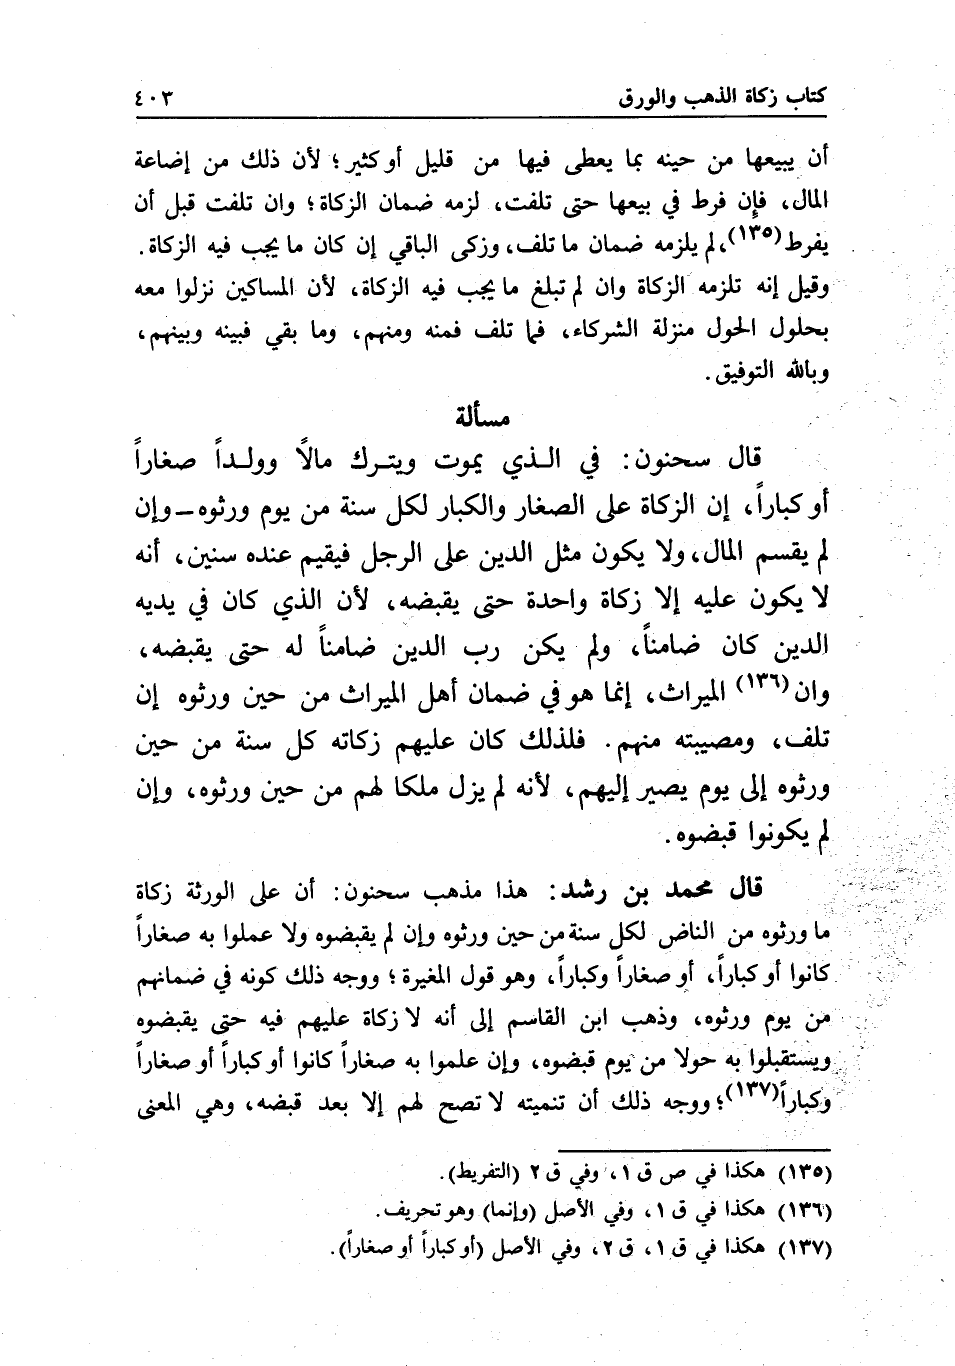 كتاب زكاة الذهب والورق ٤٠٣
أن يبيعها من حينه بما يعطى فيها من قليل أو كثير؛ لأن ذلك من إضاعة
المال، فإن فرط في بيعها حتى تلفت، لزمه ضمان الزكاة؛ وان تلفت قبل أن
يفرط(١٣٥)، لم يلزمه ضمان ما تلف، وزكى الباقي إن كان ما يجب فيه الزكاة.
وقيل إنه تلزمه الزكاة وان لم تبلغ ما يجب فيه الزكاة، لأن المساكين نزلوا معه
بحلول الحول منزلة الشركاء، فما تلف فمنه ومنهم، وما بقي فبينه وبينهم،
وبالله التوفيق.
مسألة
قال سحنون: في الـذي يموت ويتـرك مالاً وولـداً صغاراً
أو كباراً، إن الزكاة على الصغار والكبار لكل سنة من يوم ورثوه ــ وإن
لم يقسم المال، ولا يكون مثل الدين على الرجل فيقيم عنده سنين، أنه
لا يكون عليه إلا زكاة واحدة حتى يقبضه، لأن الذي كان في يديه
الدين كان ضامناً، ولم يكن رب الدين ضامناً له حتى يقبضه،
وان(١٣٦) الميراث، إنما هو في ضمان أهل الميراث من حين ورثوه إن
تلف، ومصيبته منهم. فلذلك كان عليهم زكاته كل سنة من حين
ورثوه إلى يوم يصير إليهم، لأنه لم يزل ملكا لهم من حين ورثوه، وإن
لم يكونوا قبضوه.
قال محمد بن رشد: هذا مذهب سحنون: أن على الورثة زكاة
ما ورثوه من الناض لكل سنة من حين ورثوه وإن لم يقبضوه ولا عملوا به صغاراً
كانوا أو كباراً، أو صغاراً وكباراً، وهو قول المغيرة؛ ووجه ذلك كونه في ضمانهم
من يوم ورثوه، وذهب ابن القاسم إلى أنه لا زكاة عليهم فيه حتى يقبضوه
ويستقبلوا به حولا من يوم قبضوه، وإن علموا به صغاراً كانوا أو كباراً أو صغاراً
وكباراً(١٣٧)؛ ووجه ذلك أن تنميته لا تصح لهم إلا بعد قبضه، وهي المعنى
(١٣٥) هكذا في ص ق ١، وفي ق ٢ (التفريط).
(١٣٦) هكذا في ق ١، وفي الأصل (وإنما) وهو تحريف.
(١٣٧) هكذا في ق ١، ق ٢، وفي الأصل (أو كباراً أو صغاراً).